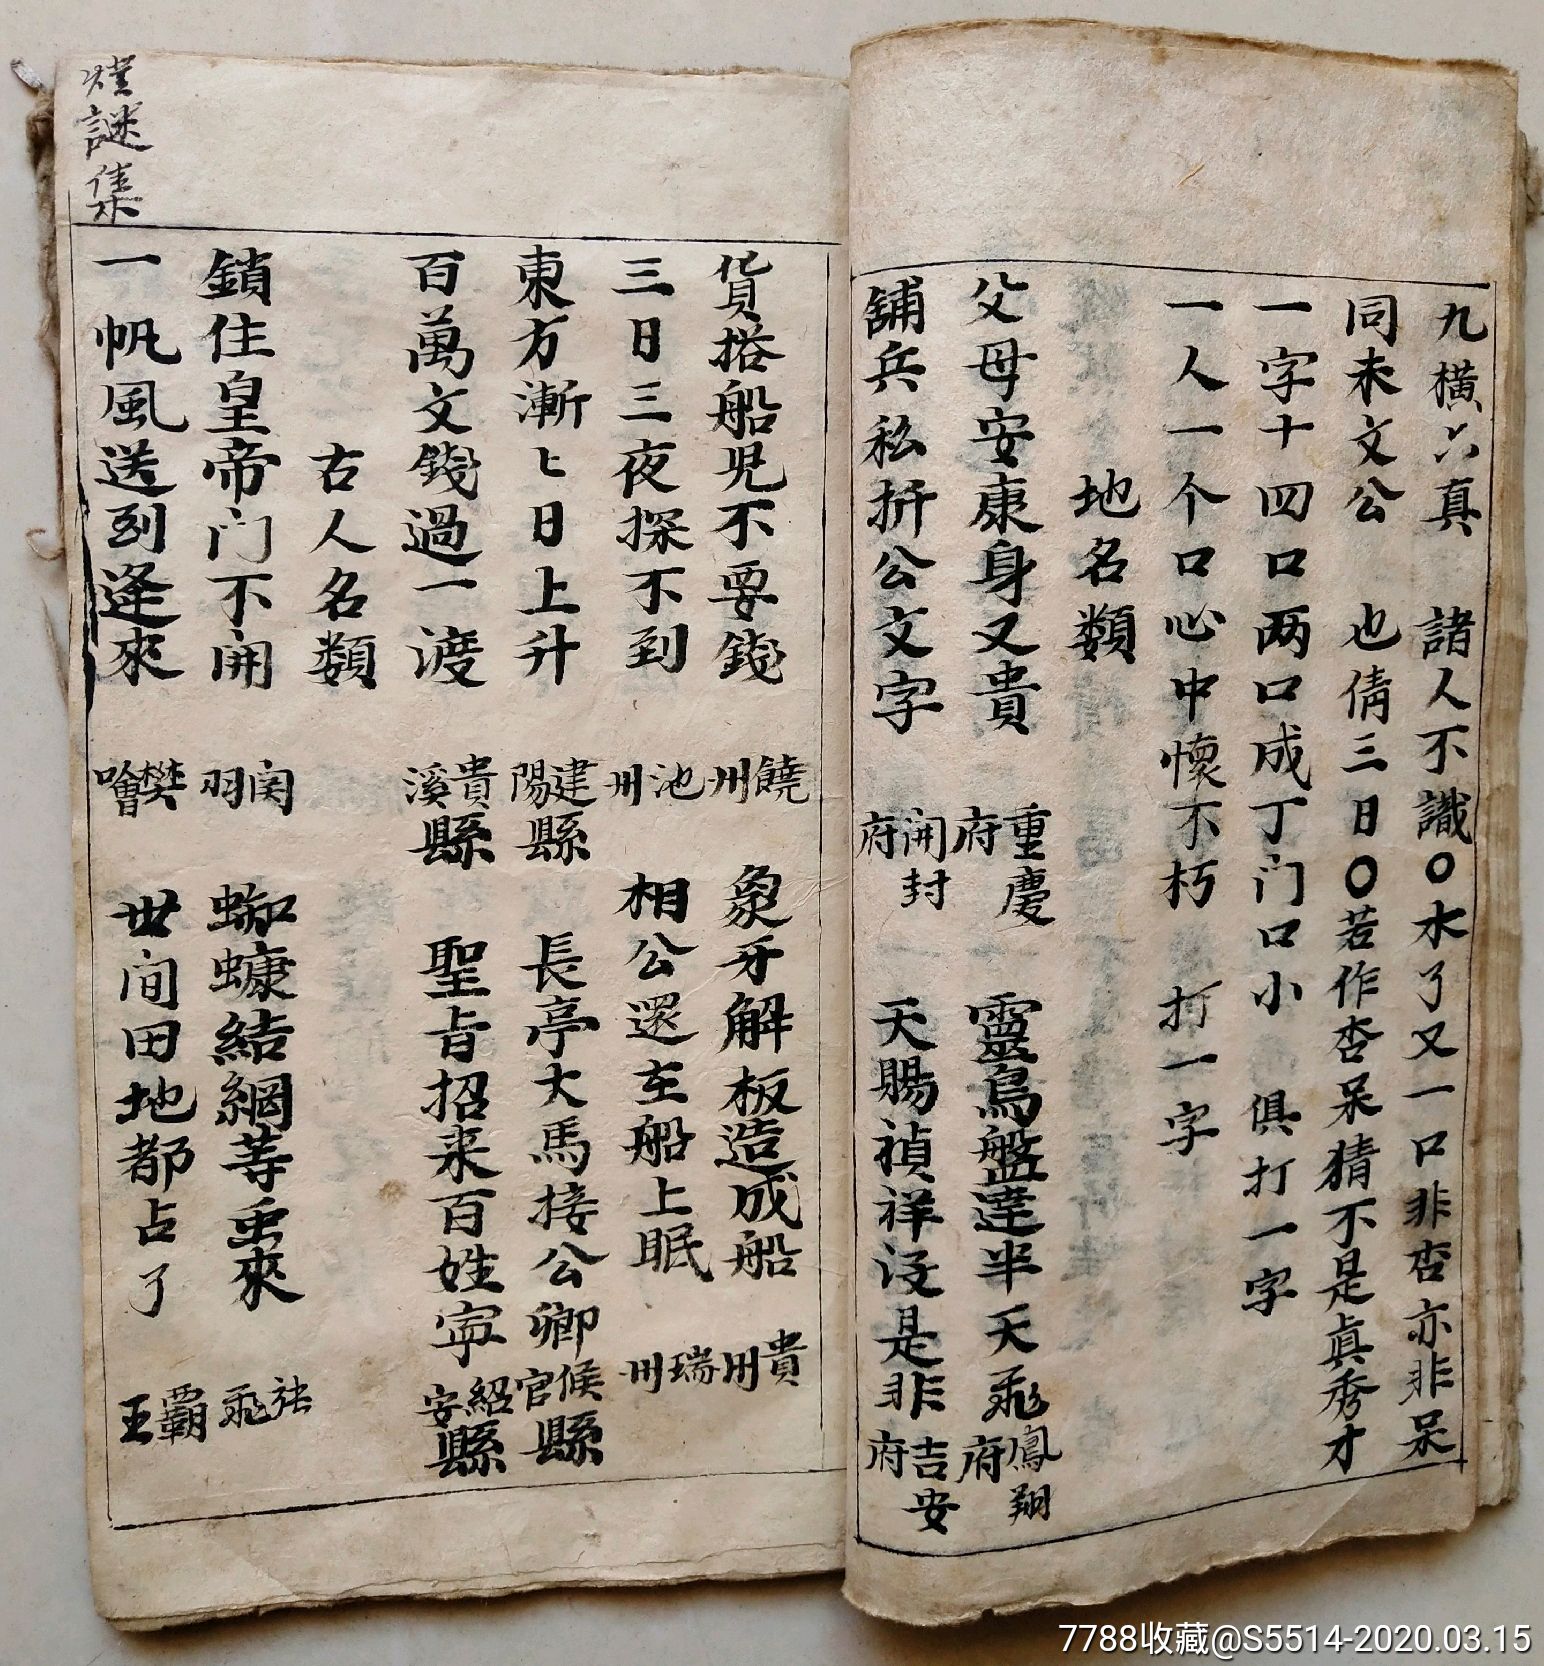 九横六真　諸人不識〇水了又一口非杏亦非呆
同未文公　也倩三日〇若作杏呆猜不是真秀才
一字十四口两口成丁门口小　俱打一字
一人一个口心中懷不朽　打一字
地名類
父母安康身又貴　重慶府　靈鳥盤達半天飛　鳳翔府
舖兵私折公文字　開封府　天賜禎祥没是非　吉安府
貨搭船児不要錢　饒州　象牙解板造成船　貴州
三日三夜探不到　池州　相公還在船上眠　瑞州
東方漸〻日上升　建陽縣　長亭大馬接公卿　候官縣
百萬文錢過一渡　貴溪縣　聖旨招来百姓寧　紹安縣
古人名類
鎖住皇帝门不開　関羽　蜘蠊結網等虫來　張飛
一帆風送到逢來　樊噲　世间田地都占了　霸王
燈謎集
7788收藏@S5514-2020.03.15